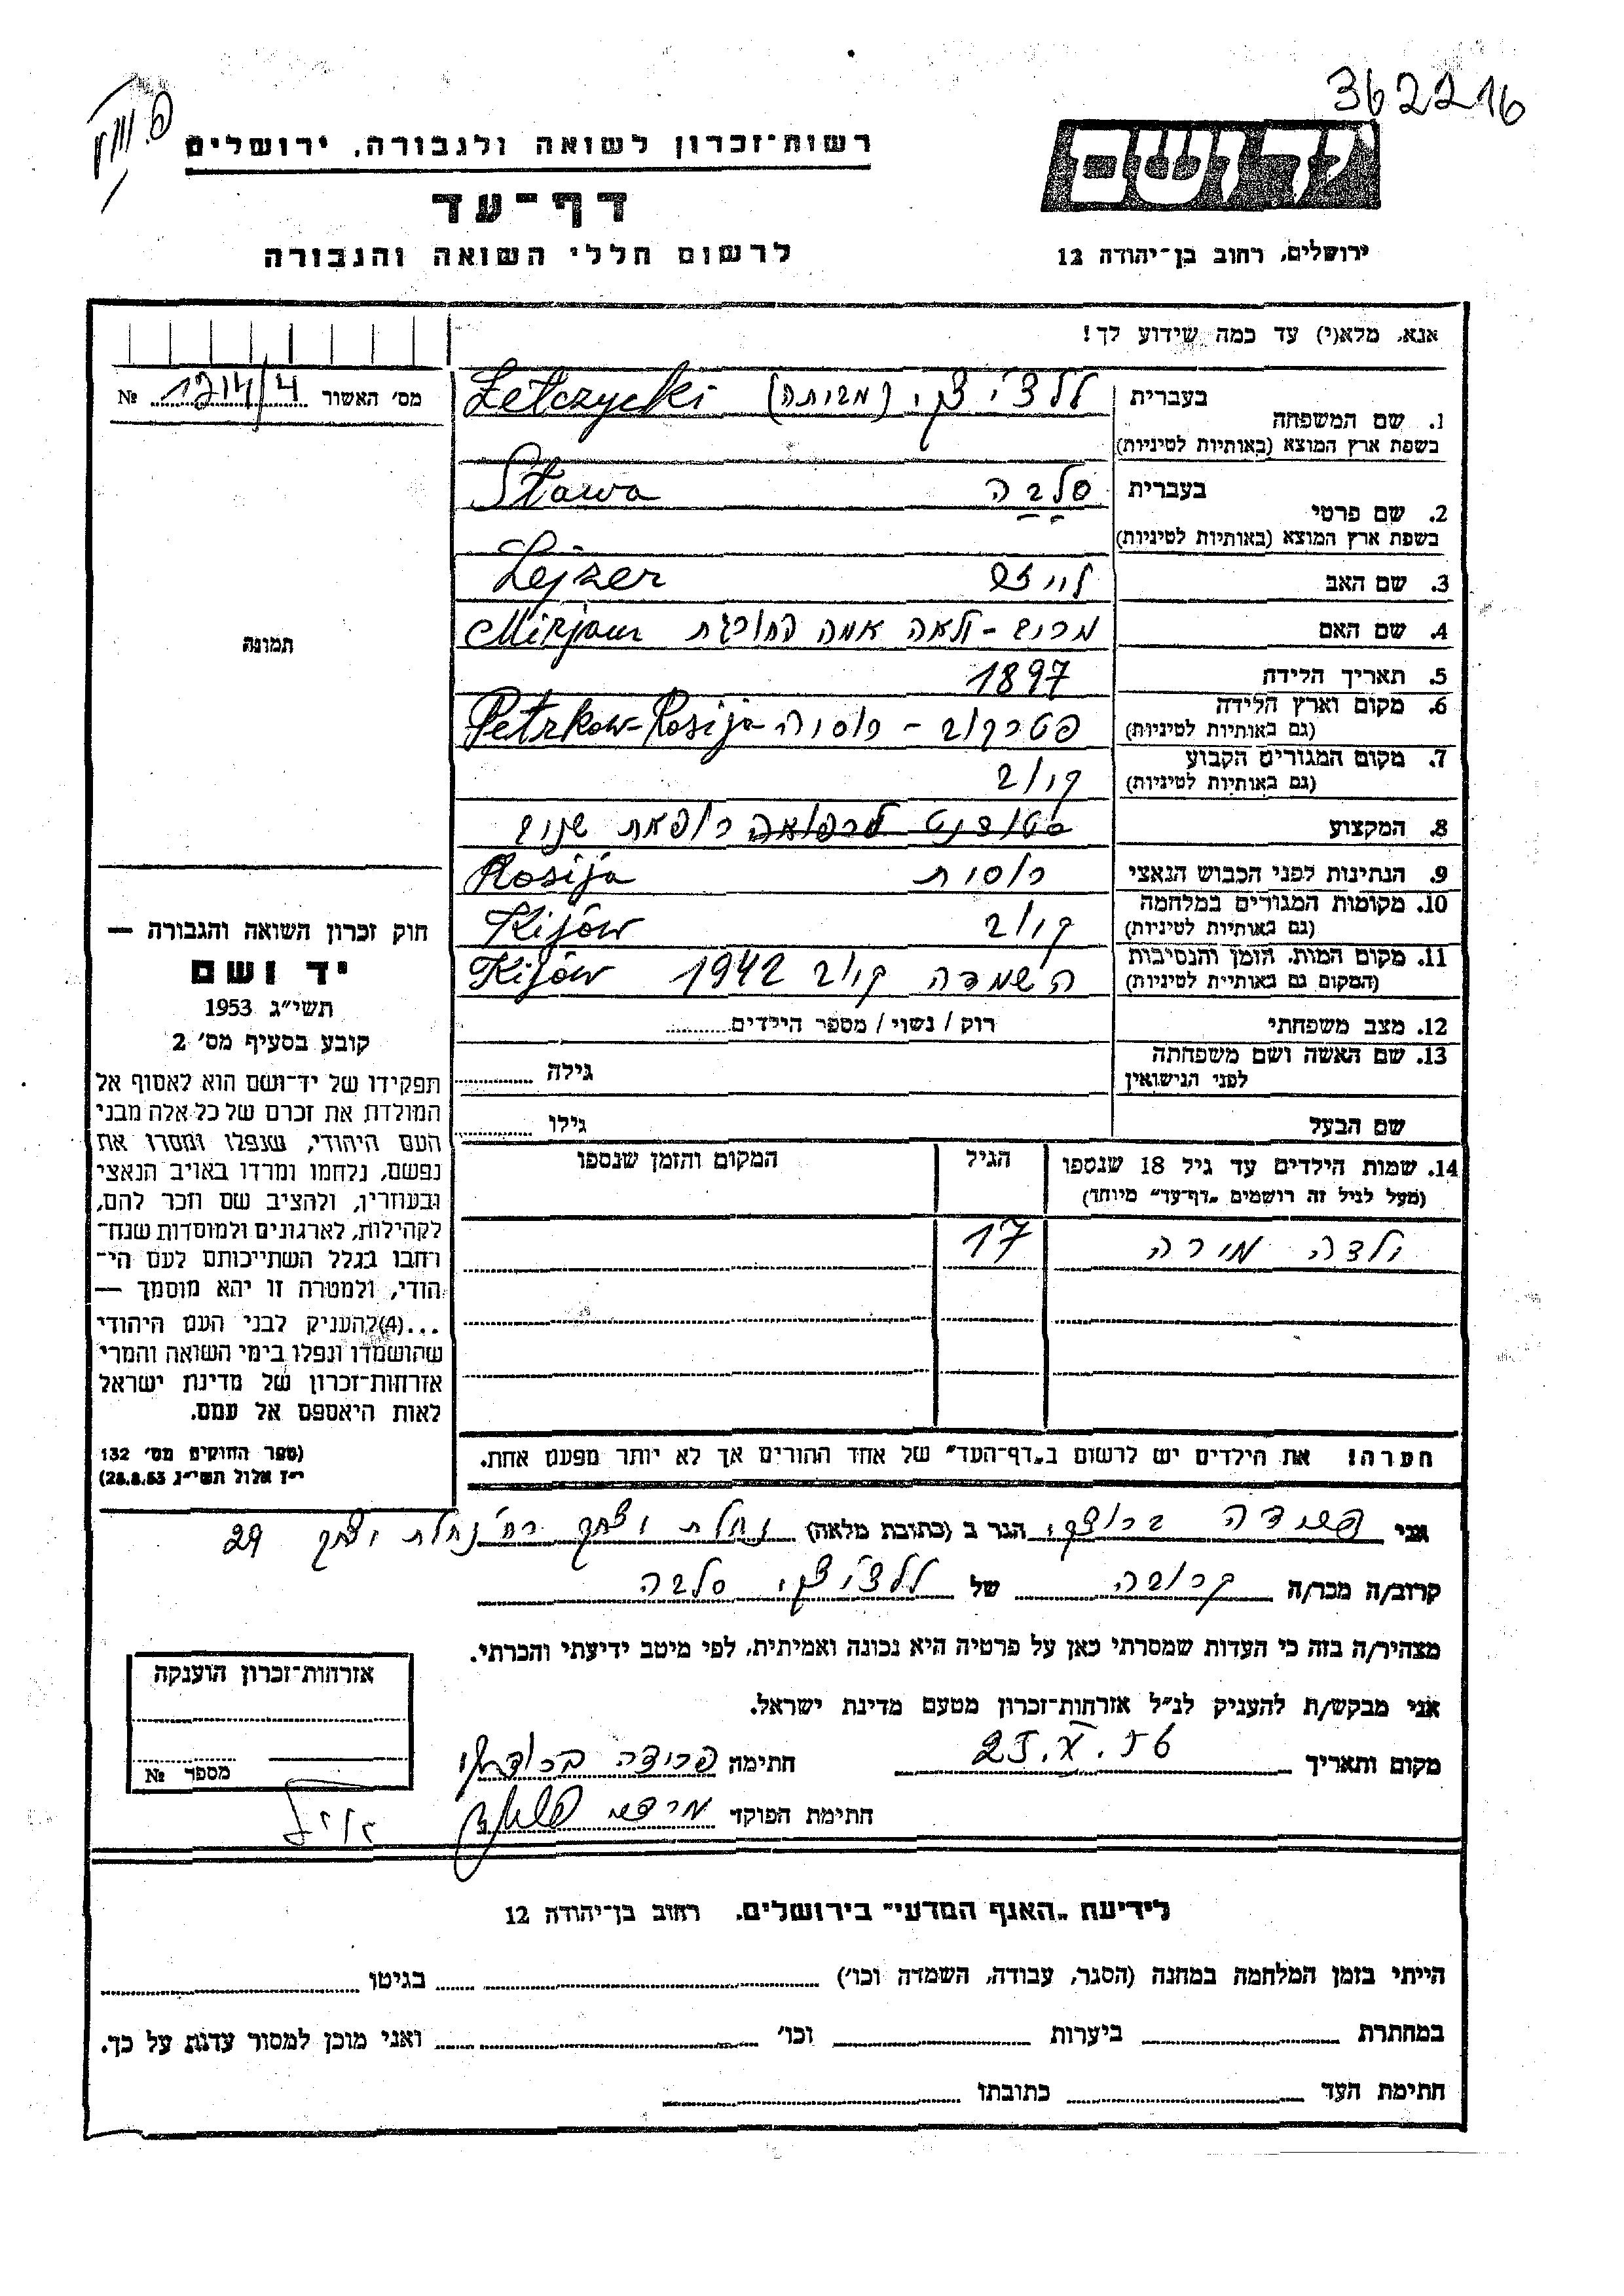 362216
רשות-זכרון לשואה ולגבורה, ירושלים
דף-עד
לרשום חללי השואה והגבורה
ידושם
ירושלים, רחוב בן-יהודה 12
אנא, מלא(י) עד כמה שידוע לך!
מס׳ האשור 1214/4 №
1. שם המשפחה
בעברית
בשפת ארץ המוצא (באותיות לטיניות)
ללצ׳יצקי Lelczycki
2. שם פרטי
בעברית
בשפת ארץ המוצא (באותיות לטיניות)
סלבה Sława
3. שם האב לייזר Lejzer
4. שם האם אמה החורגת Mirjam
5. תאריך הלידה 1897
6. מקום וארץ הלידה
(גם באותיות לטיניות)
פטרקוב - רוסיה Petrkow-Rosija
7. מקום המגורים הקבוע
(גם באותיות לטיניות)
קיוב
8. המקצוע סטודנט לרפואה רופאת שנים
9. הנתינות לפני הכבוש הנאצי רוסית Rosija
10. מקומות המגורים במלחמה
(גם באותיות לטיניות)
קיוב Kijów
11. מקום המות, הזמן והנסיבות
(המקום גם באותיות לטיניות)
השמדה קיוב 1942 Kijów
12. מצב משפחתי רוק / נשוי / מספר הילדים
13. שם האשה ושם משפחתה
לפני הנישואין
גילה
שם הבעל גילו
14. שמות הילדים עד גיל 18 שנספו
(מעל לגיל זה רושמים „דף-עד״ מיוחד)
הגיל
המקום והזמן שנספו
ילדה מירה 17
הערה! את הילדים יש לרשום ב„דף-העד״ של אחד ההורים אך לא יותר מפעם אחת.
תמונה
חוק זכרון השואה והגבורה —
יד ושם
תשי״ג 1953
קובע בסעיף מס׳ 2
תפקידו של יד-ושם הוא לאסוף אל
המולדת את זכרם של כל אלה מבני
העם היהודי, שנפלו ומסרו את
נפשם, נלחמו ומרדו באויב הנאצי
ובעוזריו, ולהציב שם וזכר להם,
לקהילות, לארגונים ולמוסדות שנח-
רחבו בגלל השתייכותם לעם הי-
הודי, ולמטרה זו יהא מוסמך —
...(4) להעניק לבני העם היהודי
שהושמדו ונפלו בימי השואה והמרי
אזרחות-זכרון של מדינת ישראל
לאות היאספם אל עמם.
(ספר החוקים מס׳ 132
י״ז אלול תשי״ג, 28.8.53)
אני ברוצקי הגר ב (כתובת מלאה) נחלת יצחק רח׳ נחלת יצחק 29
קרוב/ה מכר/ה קרובה של ללצ׳יצקי סלבה
מצהיר/ה בזה כי העדות שמסרתי כאן על פרטיה היא נכונה ואמיתית, לפי מיטב ידיעתי והכרתי.
אני מבקש/ת להעניק לנ״ל אזרחות-זכרון מטעם מדינת ישראל.
מקום ותאריך 25.X.56 חתימה
חתימת הפוקד
אזרחות-זכרון הוענקה
מספר №
לידיעת „האגף המדעי״ בירושלים, רחוב בן-יהודה 12
הייתי בזמן המלחמה במחנה (הסגר, עבודה, השמדה וכו׳) בגיטו
במחתרת ביערות וכו׳ ואני מוכן למסור עדות על כך.
חתימת העד כתובתו